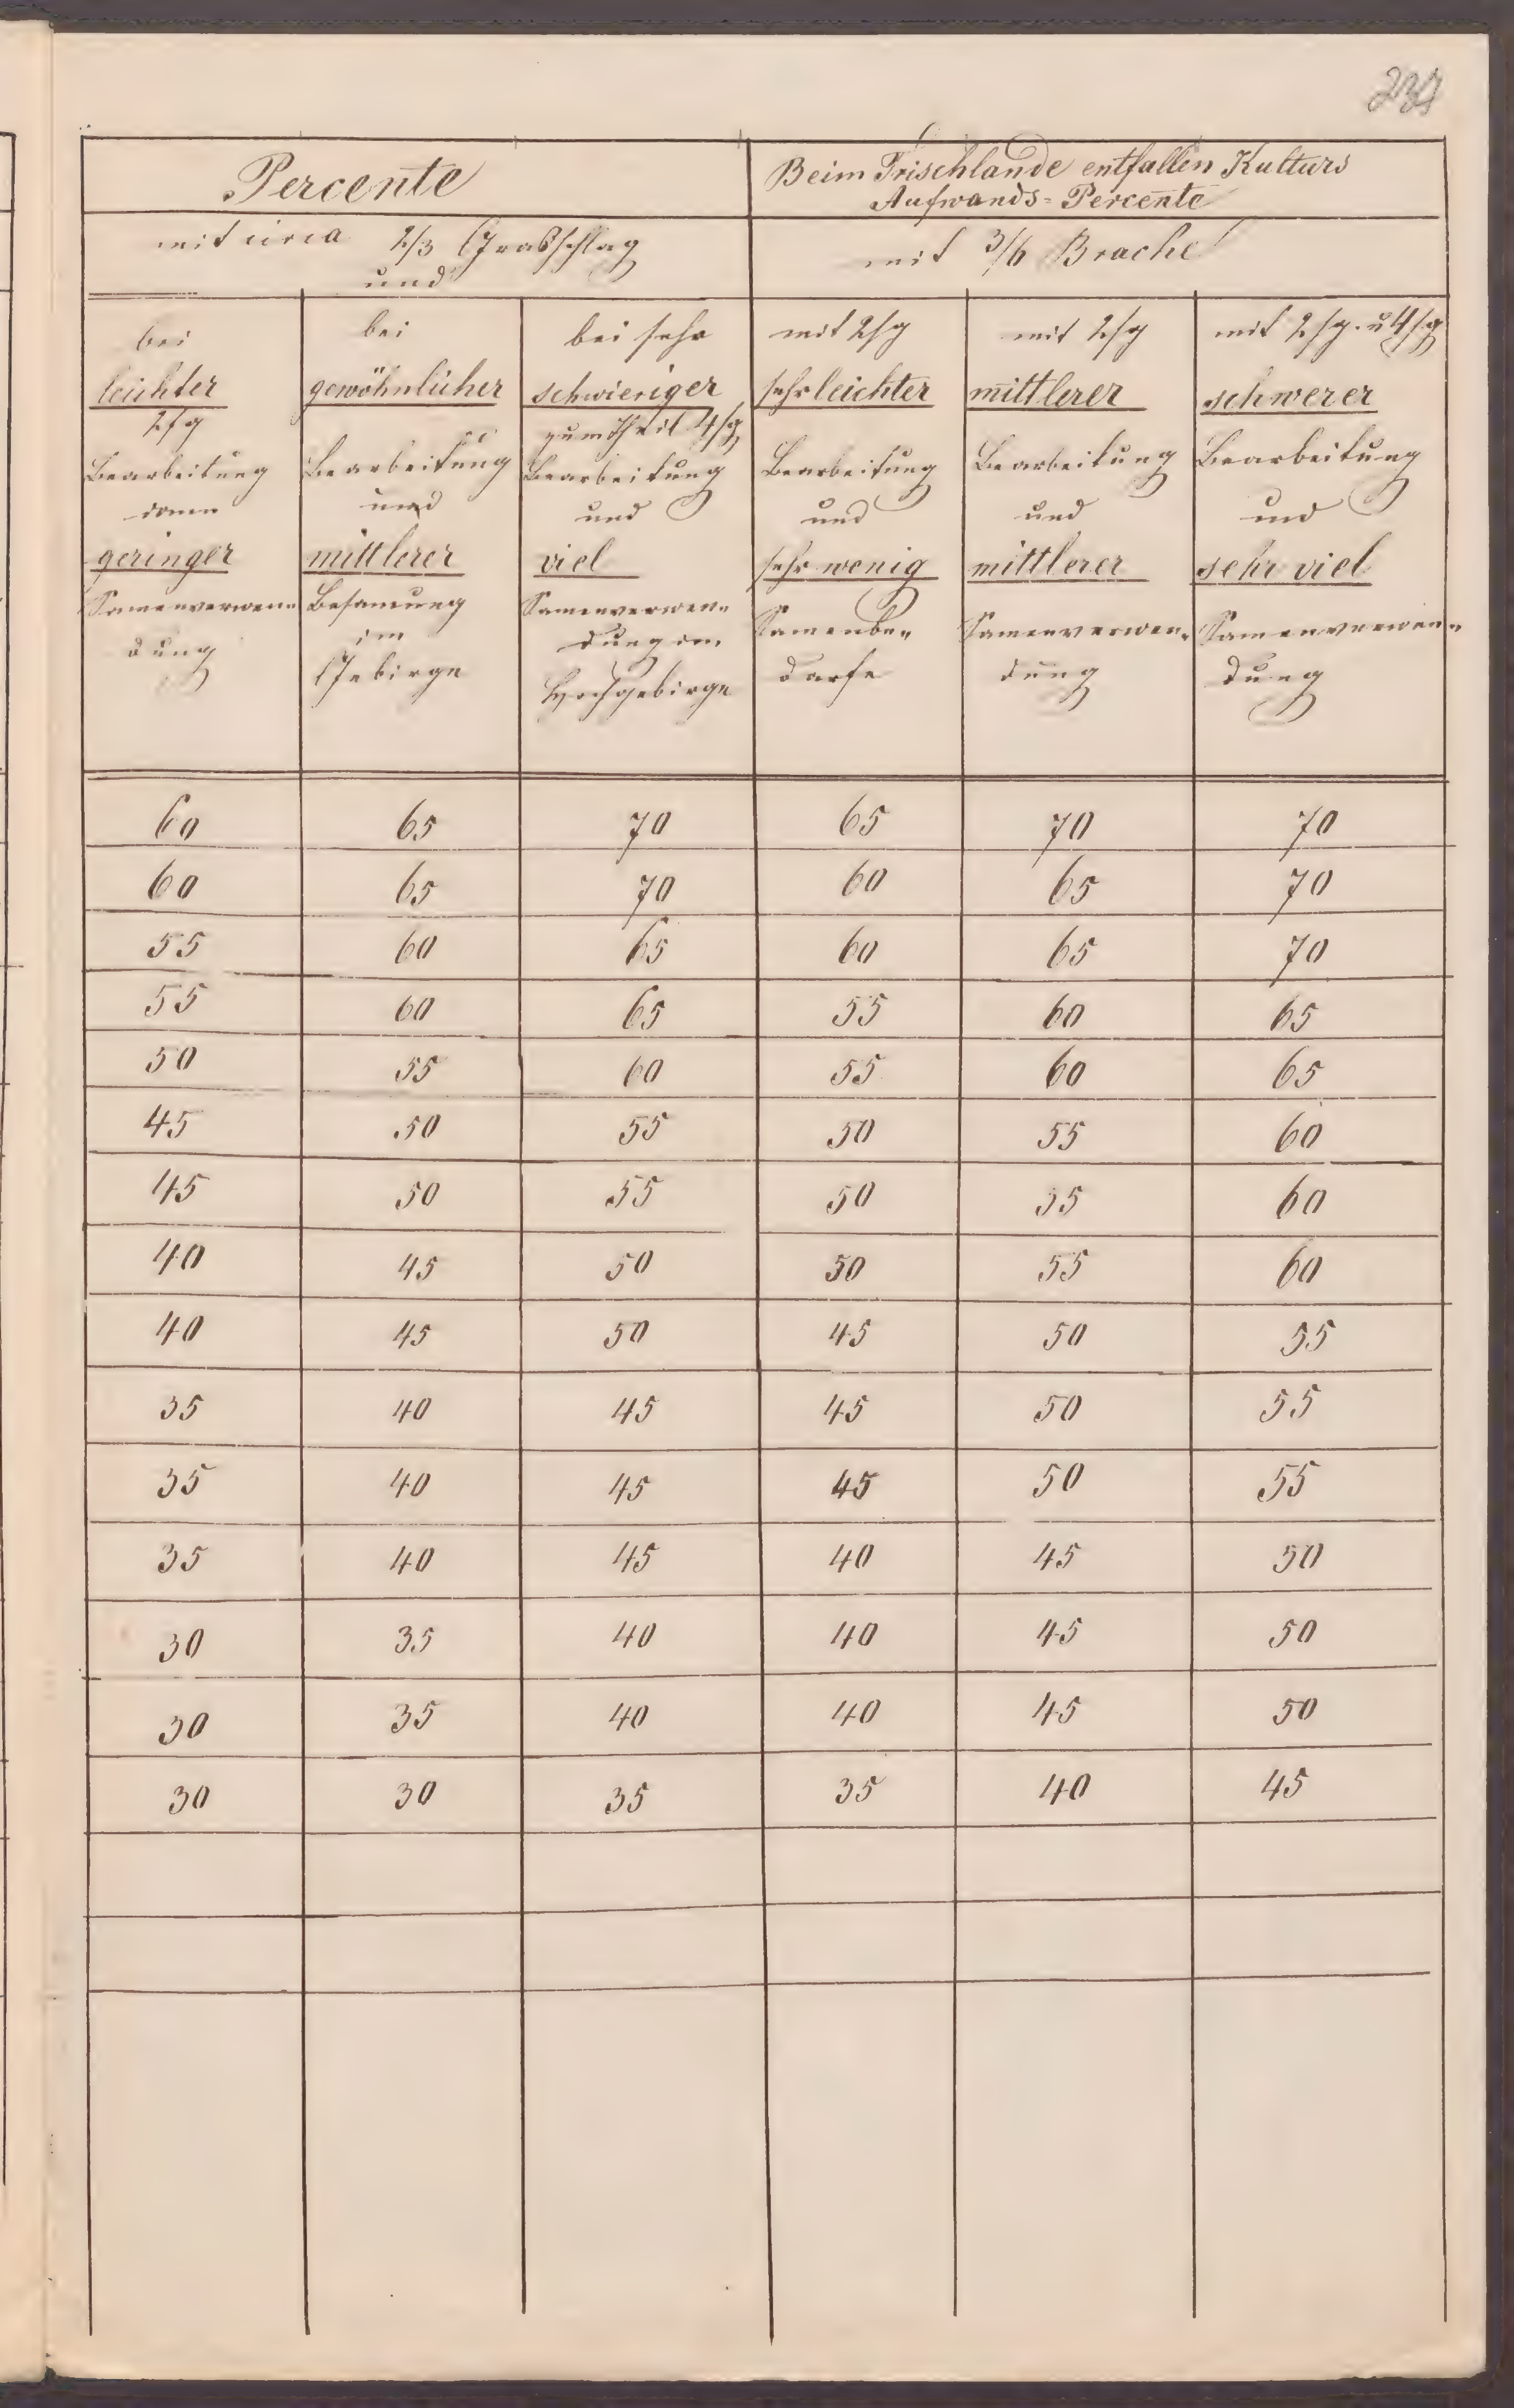 Percente
Beim Frischlande entfallen Kulturs
Aufwands=Percente
mit circa 2/3 Graßschlag
und
mit 3/6 Brache
bei
leichter
2/g
Bearbeitung
dann
geringer
Samenverwen„
dung
bei
gewöhnlicher
Bearbeitung
und
mittlerer
Besamung
im
Gebirge
bei sehr
schwieriger
zum Theil 4/g
Bearbeitung
und
viel
Samenverwen„
dung im
Hochgebirge
mit 2/g
sehr leichter
Bearbeitung
und
sehr wenig
Samenbe„
darfe
mit 2/g
mittlerer
Bearbeitung
und
mittlerer
Samenverwen„
dung
mit 2/g. u 4/g
schwerer
Bearbeitung
und
sehr viel
Samenverwen„
dung
60 65 70 65 70 70
60 65 70 60 65 70
55 60 65 60 65 70
55 60 65 55 60 65
50 55 60 55 60 65
45 50 55 50 55 60
45 50 55 50 55 60
40 45 50 50 55 60
40 45 50 45 50 55
35 40 45 45 50 55
35 40 45 45 50 55
35 40 45 40 45 50
30 35 40 40 45 50
30 35 40 40 45 50
30 30 35 35 40 45